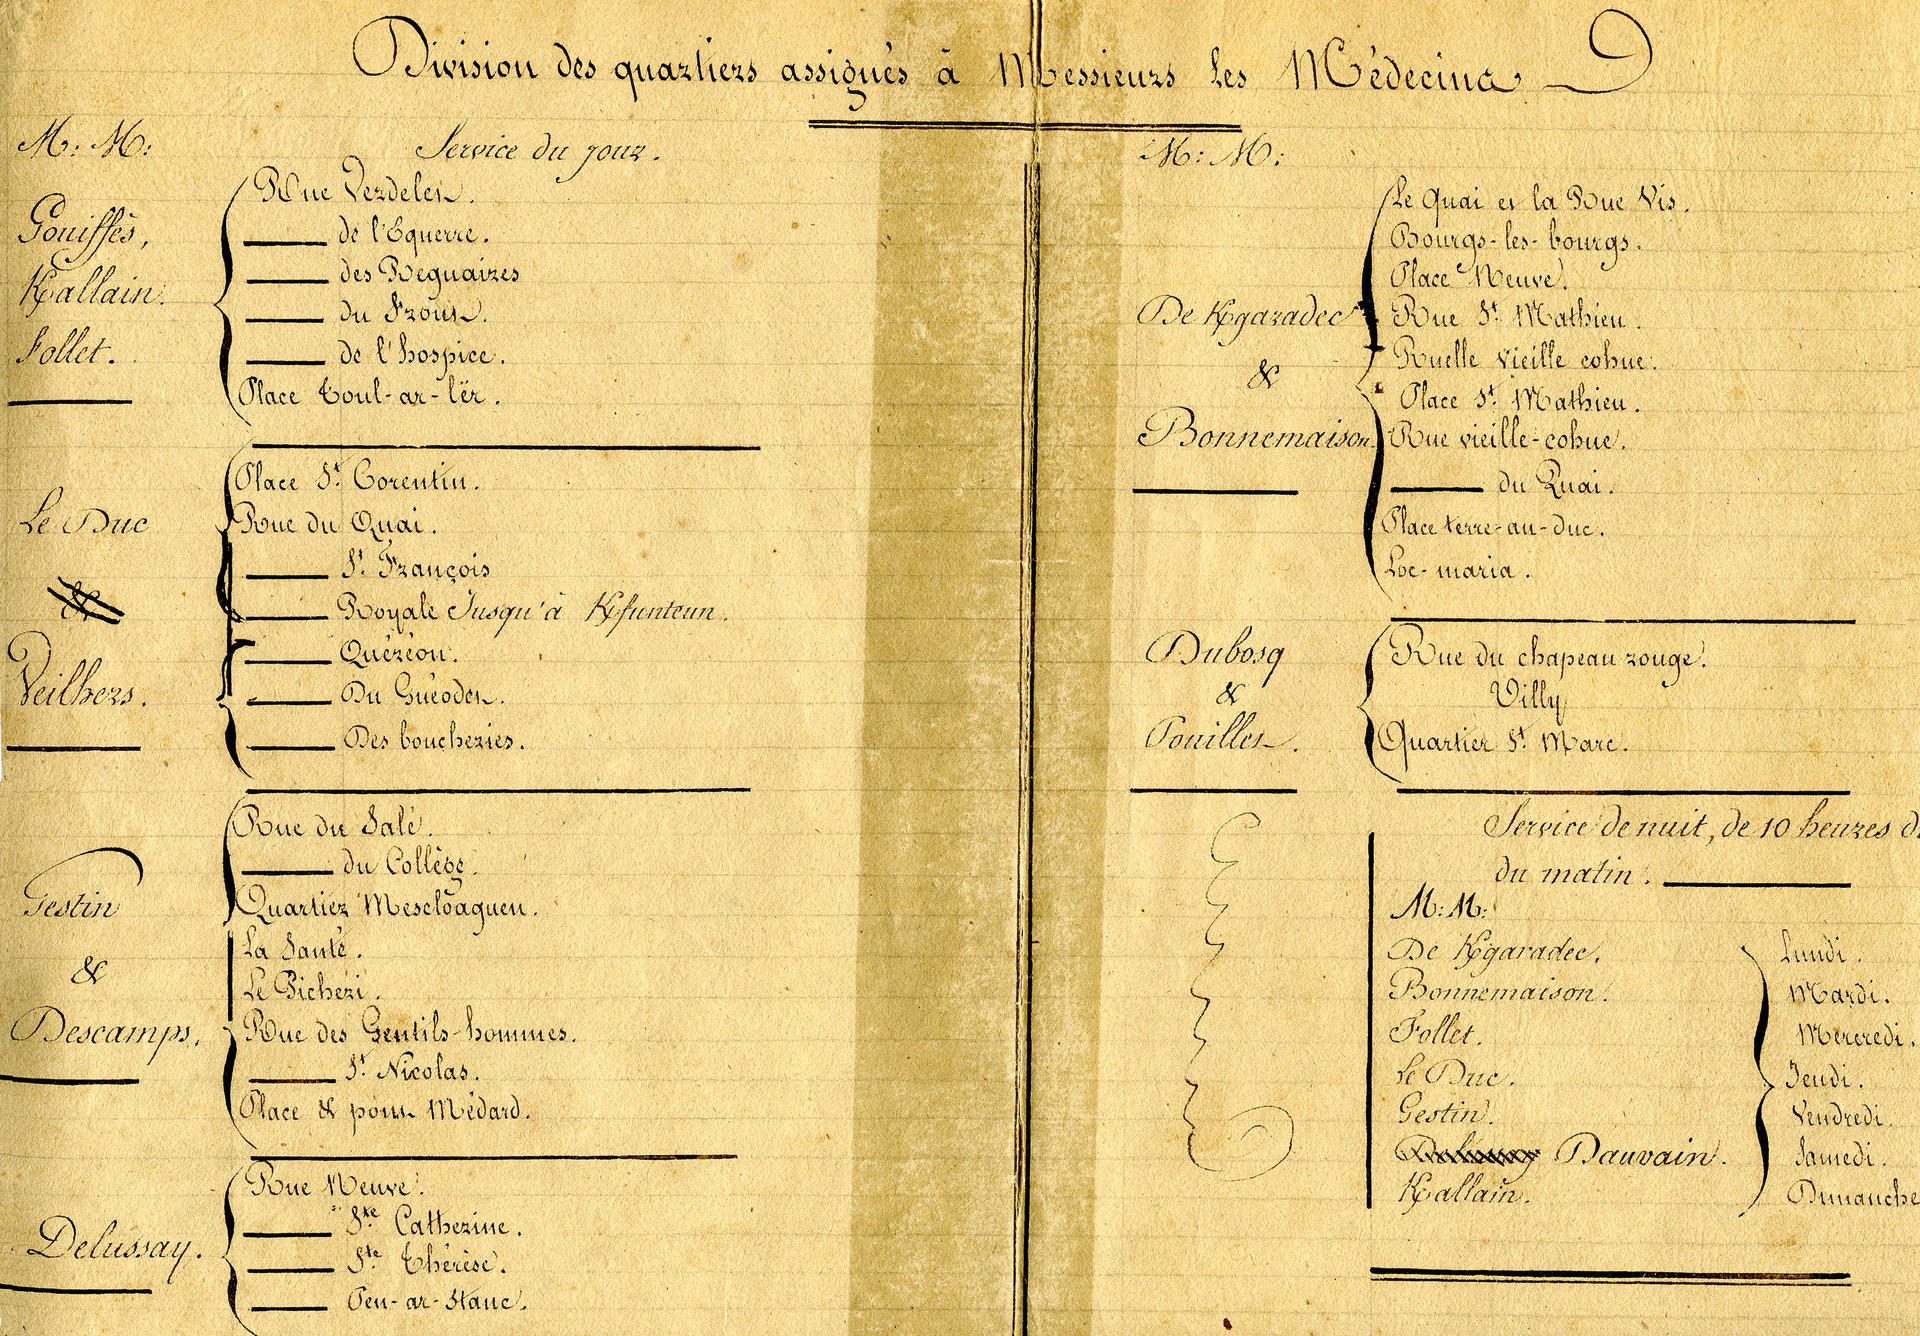 Division des quartiers assignés à Messieurs les Médecins
M: M:
Service du jour.
Gouiffès,
Kallain.
Follet.
Rue Verdelet.
de l'Equerre.
des Reguaires
du Frout.
de l'hospice.
Place Toul-ar-lër.
Le Duc
&
Veilhers.
Place St Corentin.
Rue du Quai.
St François
Royale Jusqu'à Kfunteun.
Quéréon.
Du Guéodet.
Des boucheries.
Gestin
&
Descamps.
Rue du Salé.
du Collège.
Quartier Mescloaguen.
La Santé.
Le Pichéri.
Rue des Gentils-hommes.
St Nicolas.
Place & pont Médard.
Delussay.
Rue Neuve.
Ste Catherine.
Ste Thérèse.
Pen-ar-Stanc.
M: M:
De Kgaradec
&
Bonnemaison
Le Quai et la Rue Vis.
Bourgs-les-bourgs.
Place Neuve.
Rue St Mathieu.
Ruelle vieille cohue.
Place St Mathieu.
Rue vieille-cohue.
du Quai.
Place terre-au-duc.
Loc-maria.
Dubosq
&
Pouillet.
Rue du chapeau rouge.
Villy
Quartier St Marc.
Service de nuit, de 10 heures
du matin.
M: M:
De Kgaradec. Lundi.
Bonnemaison. Mardi.
Follet. Mercredi.
Le Duc. Jeudi.
Gestin. Vendredi.
Dauvain. Samedi.
Kallain. Dimanche